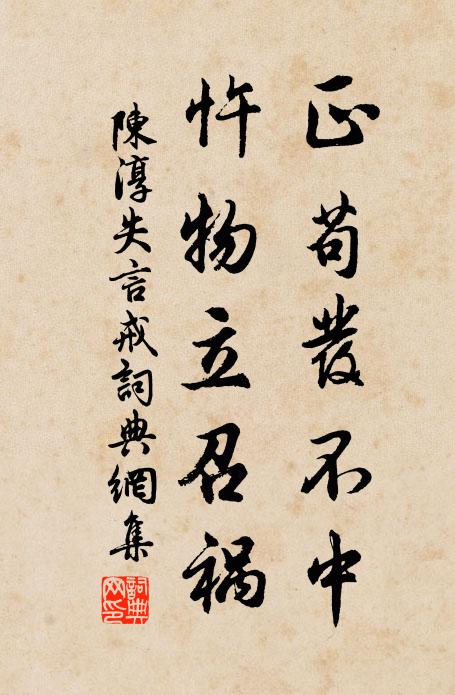 正苟發不中
忤物立召禍
陳淳失言戒詞典網集
詞典網印